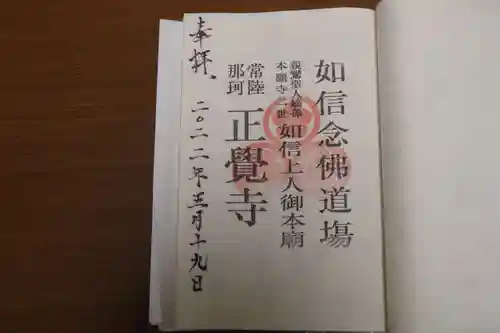 如信念佛道場
親鸞聖人嫡孫
本願寺二世
如信上人御本廟
常陸
那珂
正覺寺
奉拝、
二〇二二年三月十九日